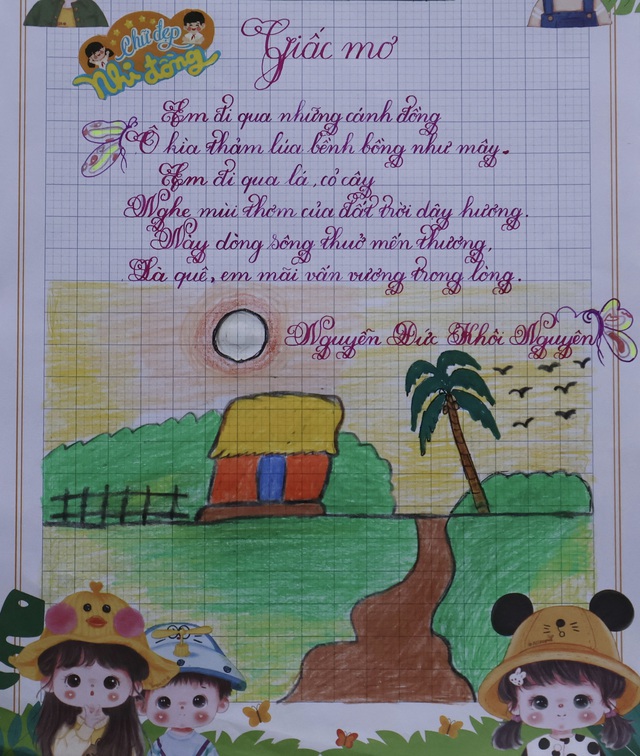 Chữ đẹp
Nhi đồng
Giấc mơ
Em đi qua những cánh đồng
Ồ kìa thảm lúa bềnh bồng như mây.
Em đi qua lá, cỏ cây
Nghe mùi thơm của đất trời dậy hương.
Này dòng sông thuở mến thương,
Là quê, em mãi vấn vương trong lòng.
Nguyễn Đức Khôi Nguyên